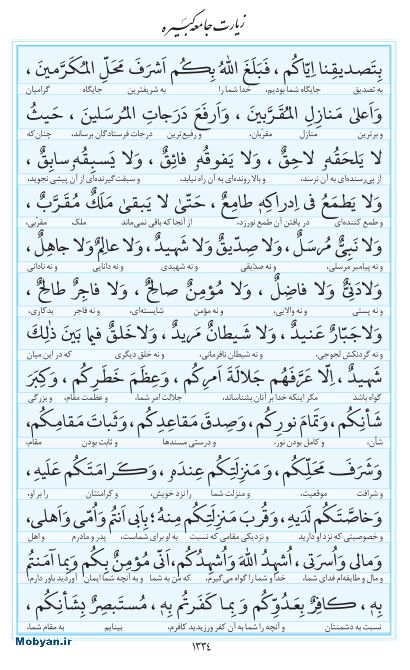 زیارت جامعه کبیره
بِتَصدیقِنا اِیّاکُم ، فَبَلَغَ اللهُ بِکُم اَشرَفَ مَحَلِّ المُکَرَّمینَ ،
به تصدیق جایگاه شما بودیم، خدا شما را به شریفترین جایگاه گرامیان
وَ اَعلیٰ مَنازِلِ المُقَرَّبینَ ، وَ اَرفَعَ دَرَجاتِ المُرسَلینَ ، حَیثُ
و برترین منازل مقرّبان، و رفیع‌ترین درجات فرستادگان برساند، چنان‌که
لا یَلحَقُهٗ لاحِقٌ ، وَلا یَفوقُهٗ فائِقٌ ، وَلا یَسبِقُهٗ سابِقٌ ،
از پی‌رسنده‌ای به آن نرسد، و بالا رونده‌ای به آن راه نیابد، و سبقت‌گیرنده‌ای از آن پیشی نجوید،
وَلا یَطمَعُ فی اِدراکِهٖ طامِعٌ ، حَتّیٰ لا یَبقیٰ مَلَکٌ مُقَرَّبٌ ،
و طمع کننده‌ای در یافتن آن طمع نورزد، از آنجا که باقی نمی‌ماند ملک مقربی،
وَلا نَبِیٌّ مُرسَلٌ ، وَلا صِدّیقٌ وَلا شَهیدٌ ، وَلا عالِمٌ وَلا جاهِلٌ ،
و نه پیامبر مرسلی، و نه صدّیقی و نه شهیدی و نه دانایی و نه نادانی
وَلا دَنِیٌّ وَلا فاضِلٌ ، وَلا مُؤمِنٌ صالِحٌ ، وَلا فاجِرٌ طالِحٌ ،
و نه پستی و نه والایی، و نه مؤمن شایسته‌ای، و نه فاجر بدکاری،
وَلا جَبّارٌ عَنیدٌ ، وَلا شَیطانٌ مَریدٌ ، وَلا خَلقٌ فیما بَینَ ذٰلِکَ
و نه گردنکش لجوجی، و نه شیطان نافرمانی، و نه خلق دیگری که در این میان
شَهیدٌ ، اِلّا عَرَّفَهُم جَلالَةَ اَمرِکُم ، وَ عِظَمَ خَطَرِکُم ، وَ کِبَرَ
گواه باشد مگر اینکه خدا بر آنان بشناساند، جلالت امر شما، و عظمت مقام، و بزرگی
شَأنِکُم ، وَ تَمامَ نورِکُم ، وَ صِدقَ مَقاعِدِکُم ، وَ ثَباتَ مَقامِکُم ،
شأن، و کامل بودن نور، و درستی مسندها و ثابت بودن مقام،
وَ شَرَفَ مَحَلِّکُم ، وَ مَنزِلَتِکُم عِندَهٗ ، وَ کَرامَتَکُم عَلَیهِ ،
و شرافت موقعیت، و منزلت شما را نزد خویش، و کرامتتان را بر او،
وَ خاصَّتَکُم لَدَیهِ ، وَ قُربَ مَنزِلَتِکُم مِنهُ ؛ بِاَبی اَنتُم وَ اُمّی وَ اَهلی ،
و خصوصیتی که نزد او دارید و نزدیکی مقامی که نسبت به او برای شماست، پدر و مادرم و اهل
وَ مالی وَ اُسرَتی ، اُشهِدُ اللهَ وَ اُشهِدُکُم ، اَنّی مُؤمِنٌ بِکُم وَ بِما آمَنتُم
و مال و طایفه‌ام فدای شما، خدا و شما را گواه می‌گیرم، که من به شما و به آنچه شما ایمان آوردید باور دارم،
بِهٖ ، کافِرٌ بِعَدُوِّکُم وَ بِما کَفَرتُم بِهٖ ، مُستَبصِرٌ بِشَأنِکُم ،
نسبت به دشمنتان و آنچه را شما به آن کفر ورزیدید کافرم، بینایم به مقام شما،
۱۳۳۴
Mobyan.ir